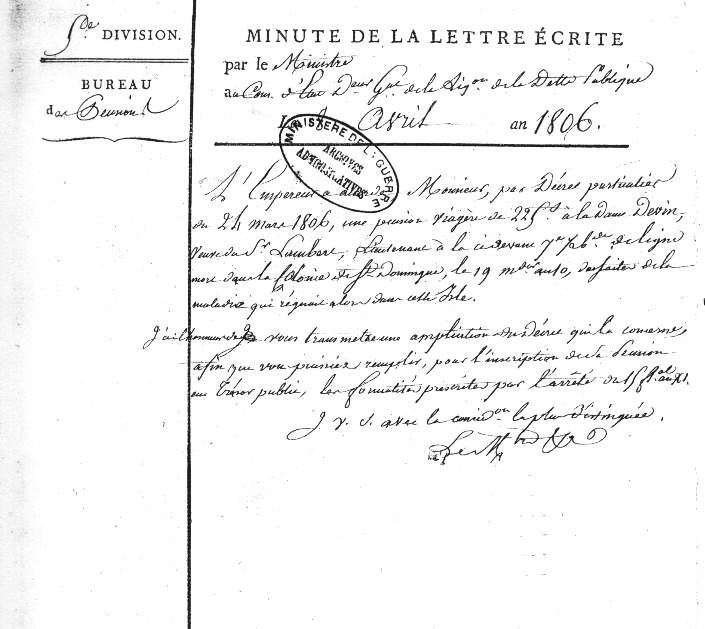 5de. DIVISION.
BUREAU
des Pensions
MINUTE DE LA LETTRE ÉCRITE
par le Ministre
au Con. d'Etat Dteur Gal. de la Liqon de la Dette Publique
Avril an 1806.
MINISTERE DE LA GUERRE
ARCHIVES
ADMINISTRATIVES
L'Empereur a accordé Monsieur, par Décret particulier
du 24 mars 1806, une pension viagère de 225f à la Dame Devin,
Veuve du Sr. Lambert, Lieutenant à la ci devant 7e ½ bde de ligne
mort dans la Colonie de St. Domingue, le 19 mdor an 10, des suites de la
maladie qui régnait alors dans cette Isle.
J'ai l'honneur de vous transmettre une ampliation du décret qui la concerne,
afin que vous puissiez remplir, pour l'inscription de sa Pension
au Trésor public, les formalités prescrites par l'arrêté du 15 fal. an XI.
J. v. s. avec la considon la plus distinguée.